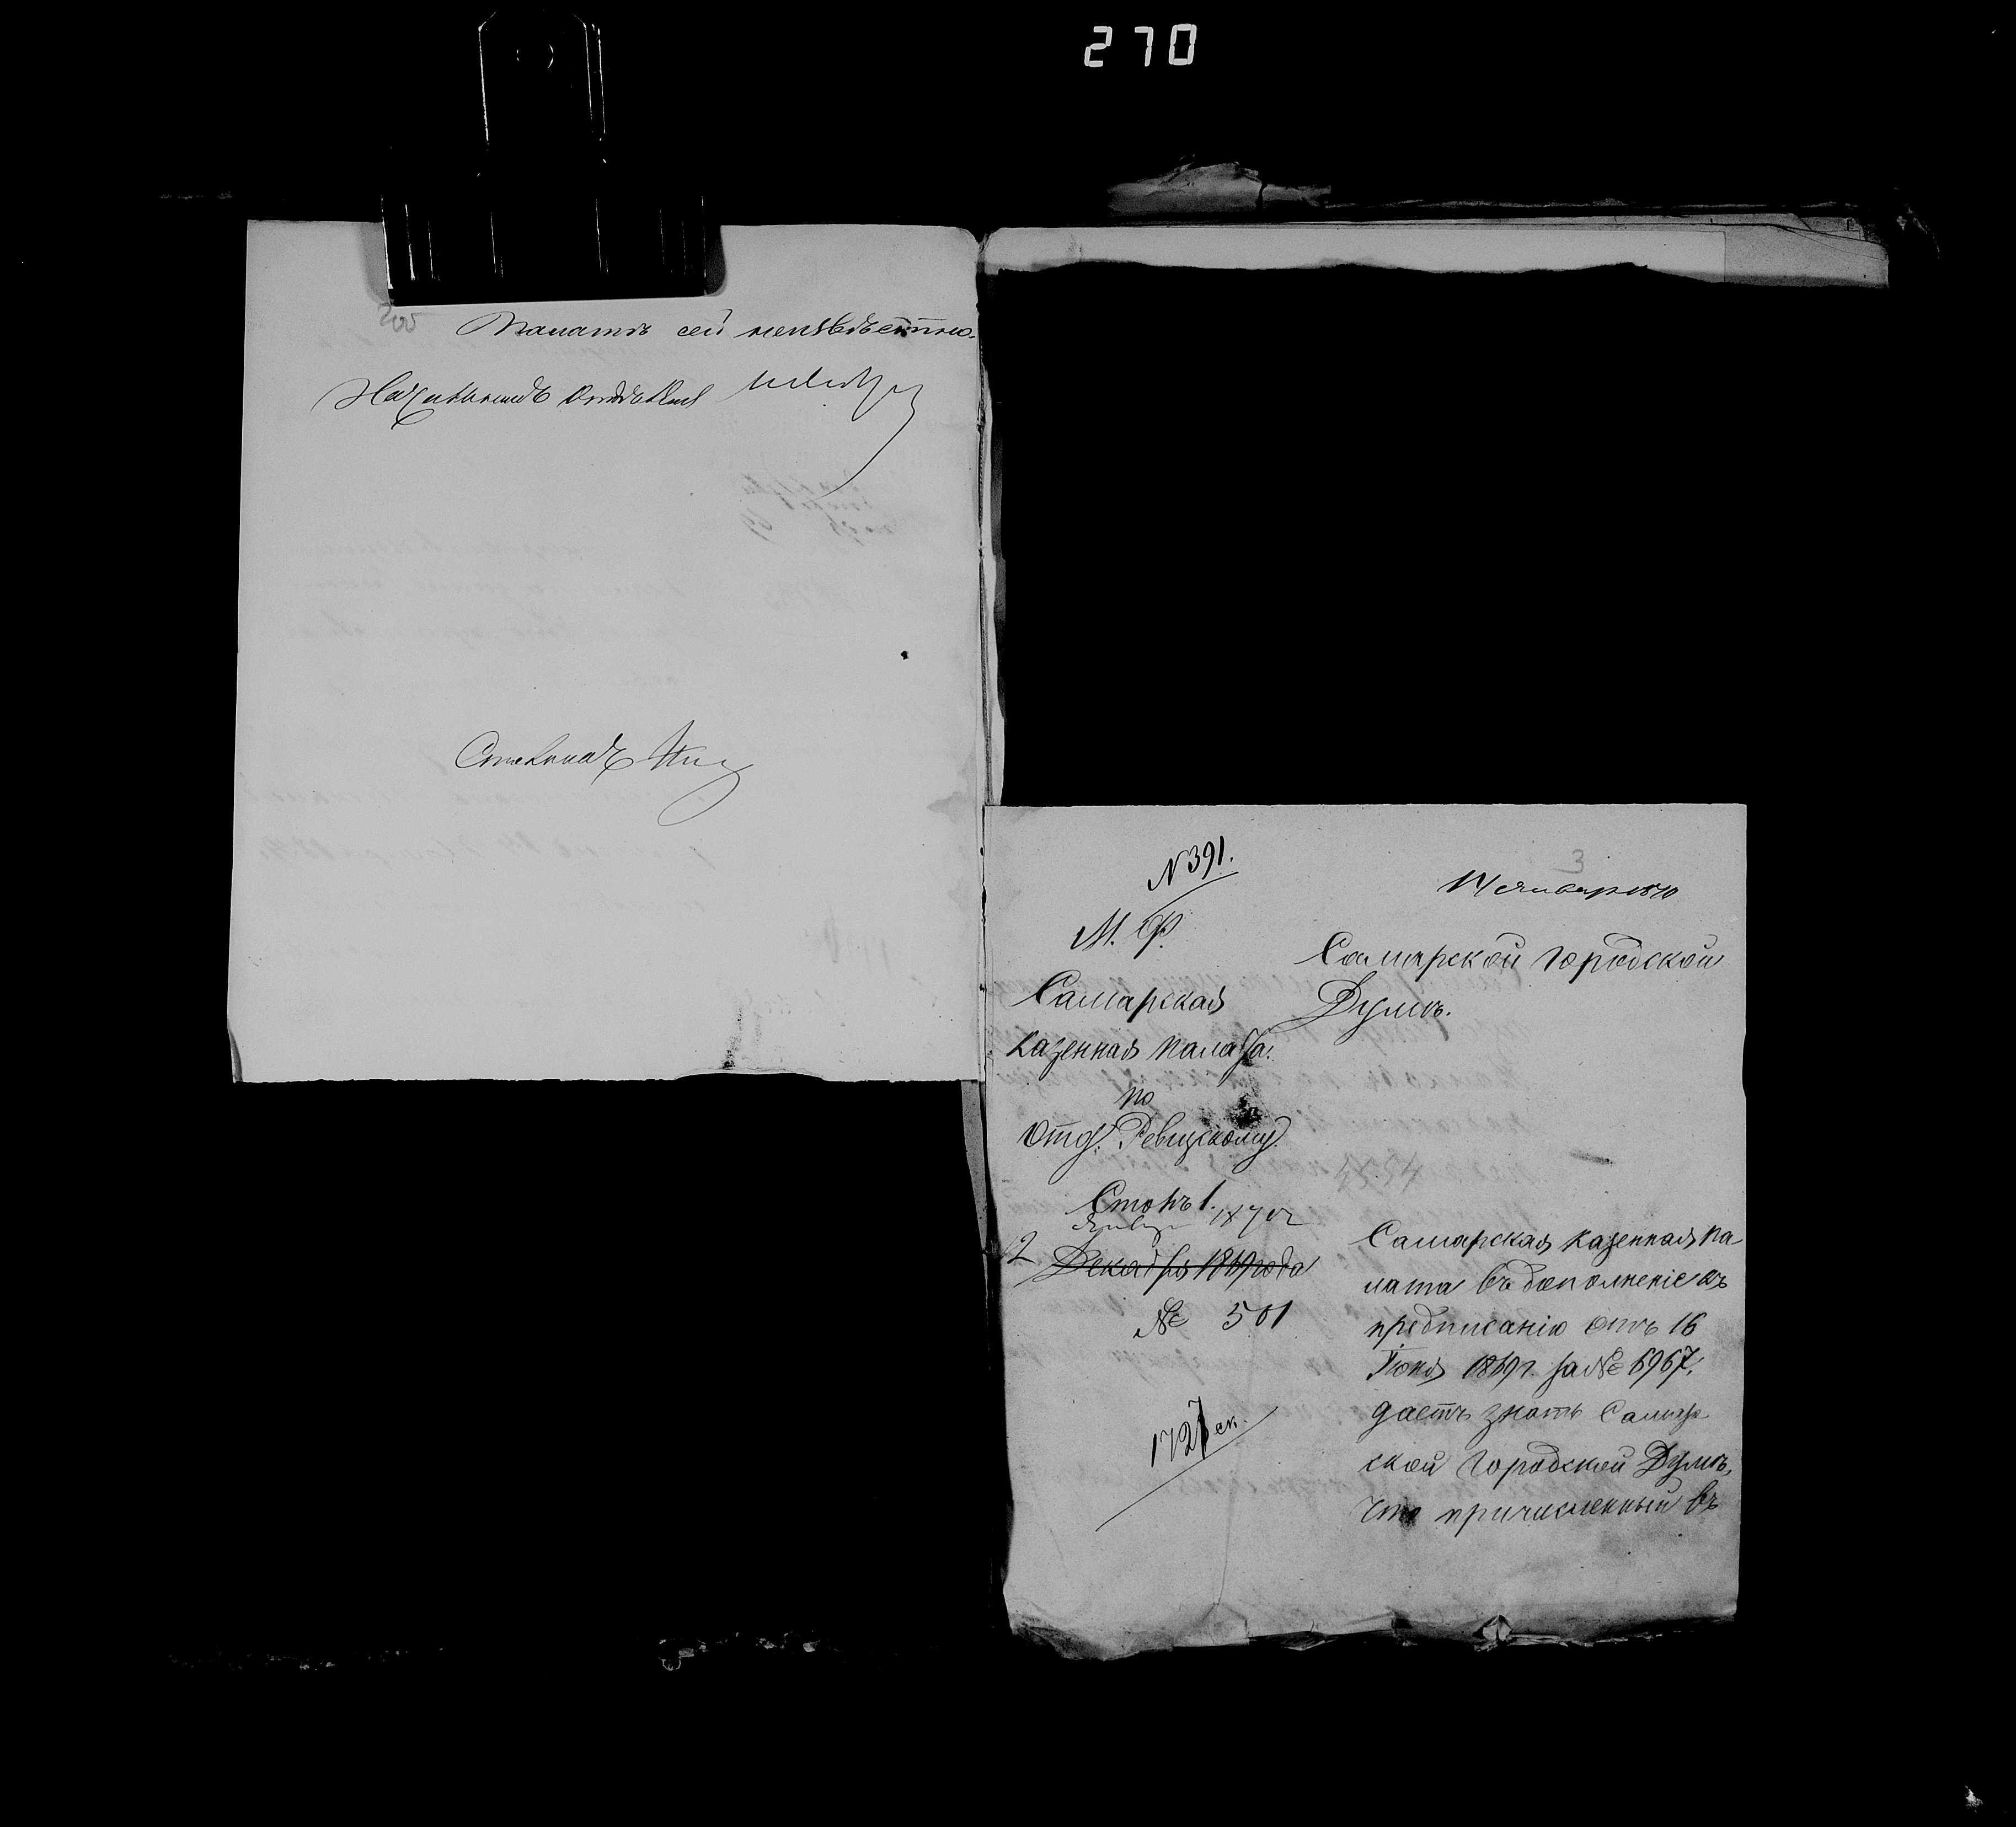 270
Палатѣ сей неизвѣстно.
Начальникъ Отдѣленія
N 391.
3
14 января 1870
М. Ф.
Самарской городской
Думѣ.
Самарская
Казенная палата.
по
Отд. Ревизскому.
Столъ 1.
Января 1870 г
12 Декабря 1869 года
№ 501
Самарская казенная па-
лата въ дополненіе къ
предписанію отъ 16
Іюня 1869 г. за № 6967.
даетъ знать Самар
ской Городской Думѣ,
что причисленный въ